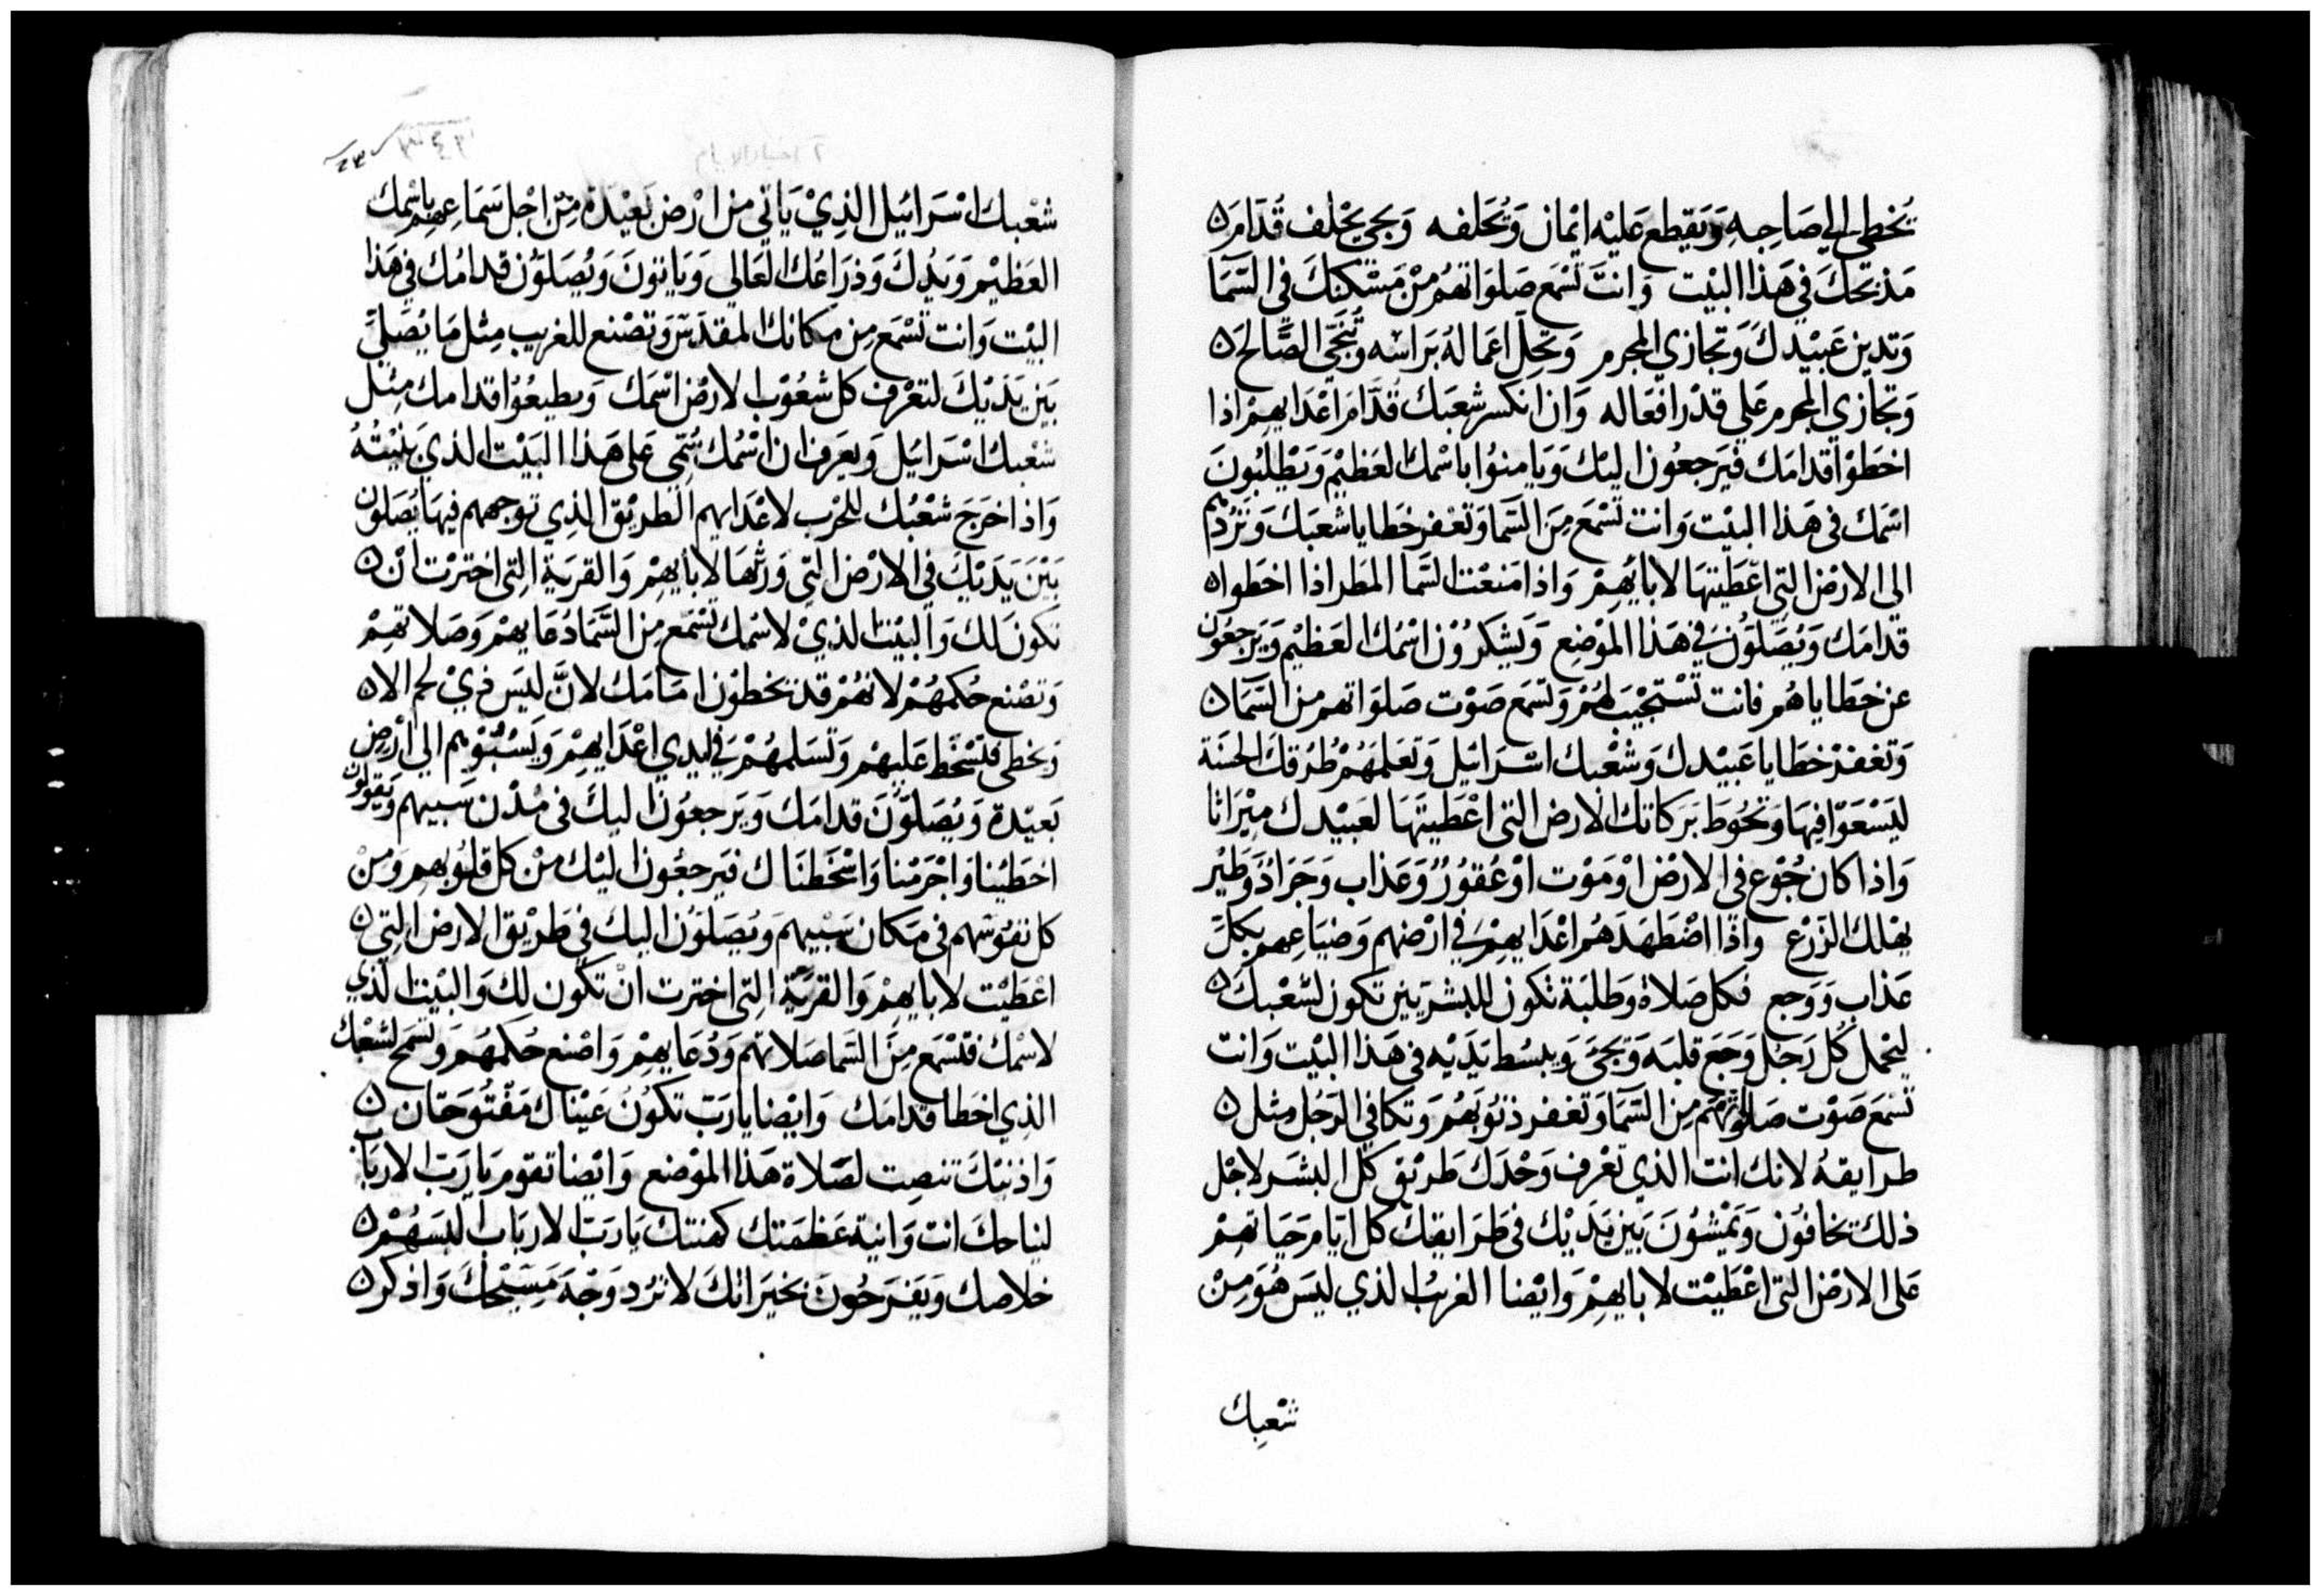 يُخطي الي صَاحِبهِ وَيَقطع عَليْه ايْمان وَيُحَلفه وَيجي يحْلف قُدَامَ
مَذبَحكَ في هَذا البيْت وَانتَ تسْمع صَلوَاتهُم مِنْ مَسْكنكَ في السَّمَا
وَتدين عَبيْدكَ وَتجَازي المجرم وَتحِل اعمَالهُ برَاسْه وتُنَجّي الصَّالح
وَتجَازي المجرم عَلي قدْر افعَاله وَاذا انكسر شعَبَك قُدَّامَ اعْدَايهِمْ اذا
اخطَوْا قدامَك فيَرجعُون اليْكَ وَيَامنوُا باسْمك العَظيْم وَيَطْلبُونَ
اسْمَك في هَذا البيْت وَانت تَسْمَع مِنَ السَّما وَتغفر خطايا شعبَكَ وَتردّهم
الي الارْض التي اعْطَيْتهَا لابايهِمْ وَاذا مَنعَت السَّما المَطر اذا اخطَوا
قدامَك وَيُصَلوُّن في هَذا الموْضع وَيشكرُوْن اسْمُك العَظيْم وَيَرجعُون
عن خطَاياهُم فانت تَسْتجيْب لهُمْ وَتسْمَع صَوْت صَلوَاتهم من السَّمَا
وَتغفرْ خطَايا عَبيْدك وَشعْبك اسْرَائيل وَتعَلمَهُمْ طُرُقكَ الحسَنة
ليَسْعَوْا فيهَا وَتحُوط بَركاتك الارض التي اعْطَيتهَا لعَبيْدك ميْرَاثا
وَاذا كان جُوْع في الارْض اوْ مَوْت اوْ عُقوُرٌ وَعَذاب وَجَرَادٌ وَطيْر
يهْلك الزرْع واذا اضْطهَدَهُم اعْدَايهمْ في ارْضهم وَضيَاعِهم بكلّ
عَذاب وَوَجع فكل صَلاة وَطلبَة تكون للبشريين تكون لشعْبكَ
ليَحْمل كُل رَجُل وَجَع قلبَه وَيجيَ وَيبسُط يَدَيْه في هَذا البيْت وَانت
تسْمَع صَوْت صَلوتهم مِن السَّمَا وَتغفر ذنوُبهُم وَتكافي الرَجُل مثل
طرايقهُ لانك انت الذي تعْرف وَحْدَك طَريْق كل البشَر لاجْل
ذلك تخافوُن وَيَمْشوُنَ بَين يَدَيْك في طَرَايقك كل ايَّام حَيَاتهمْ
عَلى الارْض التي اعْطَيْت لابايهمْ وَايْضا الغريْب الذي ليَس هُوَ مِنْ
شعْبِك
شعْبك اسْرَائيل الذِيْ يَاتي من ارْض بَعيْدَة مِنْ اجْل سَمَاعِهم باسْمك
العَظيْم وَيَدُكَ وَذرَاعُك العَالي وَيَاتونَ وَيُصَلوُّن قدامُك في هَذا
البيْت وَانت تسْمَع مِن مَكانك المقدَسّ وَتصْنع للغريب مِثل مَا يُصَليّ
بَين يَدَيْكَ لتعْرف كل شعُوْب الارْض اسْمَك وَيطيعُوْا قدامك مِثل
شعْبك اسْرَائيل وَيعرَف ان اسْمُك سُمّي عَلى هَذا البَيْت الذي بَنيْتهُ
وَاذا خرَجَ شعْبُك للحَرْب لاعْدَايهم الطَريْق الذِي توَجههم فيهَا يُصَلوُن
بَيْنَ يَدَيْكَ في الارْض التي وَرثهَا لابايهِمْ وَالقريَة التِي اخترْت انْ
تكونَ لكَ وَالبيْت الذيْ لاسْمك تَسْمَع مِن السَّمَا دُعَايهمْ وَصَلاتهِمْ
وَتصْنع حُكمهُمْ لانهُمْ قد يخطوْن امَامَك لانَّ ليَس ذيْ لحم الا
وَيخطي فتسْخط عَليهْم وَتسَلمهُمْ في ايدي اعْدَايهِمْ وَيَسْبُوْهم الي ارْض
بَعيْدة وَيُصَلوَّنَ قدامَك وَيَرجعُوْن اليكَ في مُدْن سَبيهم وَيَقولون
اخطيْنا وَاجْرَمْنا وَاسْخطنَاك فيَرجعُون اليْك منْ كل قلوُبهم وَمنْ
كل نفوُسْهم في مَكان سَبْيهم وَيُصَلوُّن اليك في طَريْق الارْض التي
اعْطَيْت لابايهمْ وَالقريَة التي اخترت انْ تكون لك وَالبيْت الذي
لاسْمك فتسْمع مِنَ السَّما صَلاتهم وَدُعَايهمْ وَاصْنع حُكمهُم وَتسْمح لشعْبك
الذِي اخطا قدامَك وَايْضا يارَبّ تكوُنُ عَيْناك مَفْتُوحَتان
وَاذنيْك تنصِت لصَلاة هَذا الموْضع وَايْضا تقوم يَارَبّ الاربَاب
لنياحك انت وَانية عَظمَتك كهنتك يَارَبّ الاربَاب البسَهُمْ
خلاصك وَيَفرَحُونَ بخيَرَاتكَ لا ترُد وَجْهَ مَسيْحكَ وَاذكر